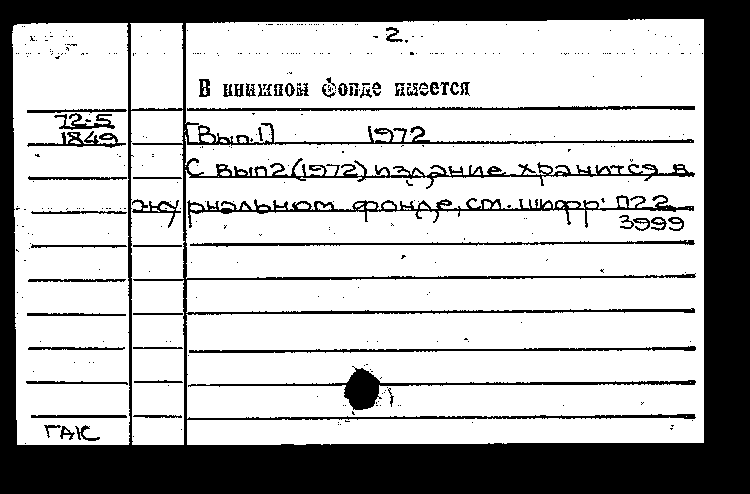 2.
В книжном фонде имеется
72-5
1849
[Вып.1] 1972
С вып2(1972) издание хранится в
журнальном фонде, см. шифр: П22
3999
ГАК